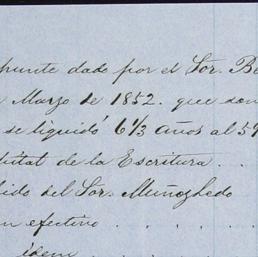 punte dado por el Sor. Be
Marzo de 1852. que son
se liquidó 6 1/3 años al 5 9
de la Escritura . . .
ido del Sor. Muñozhedo
en efectivo . . . . .
idem . . . . .